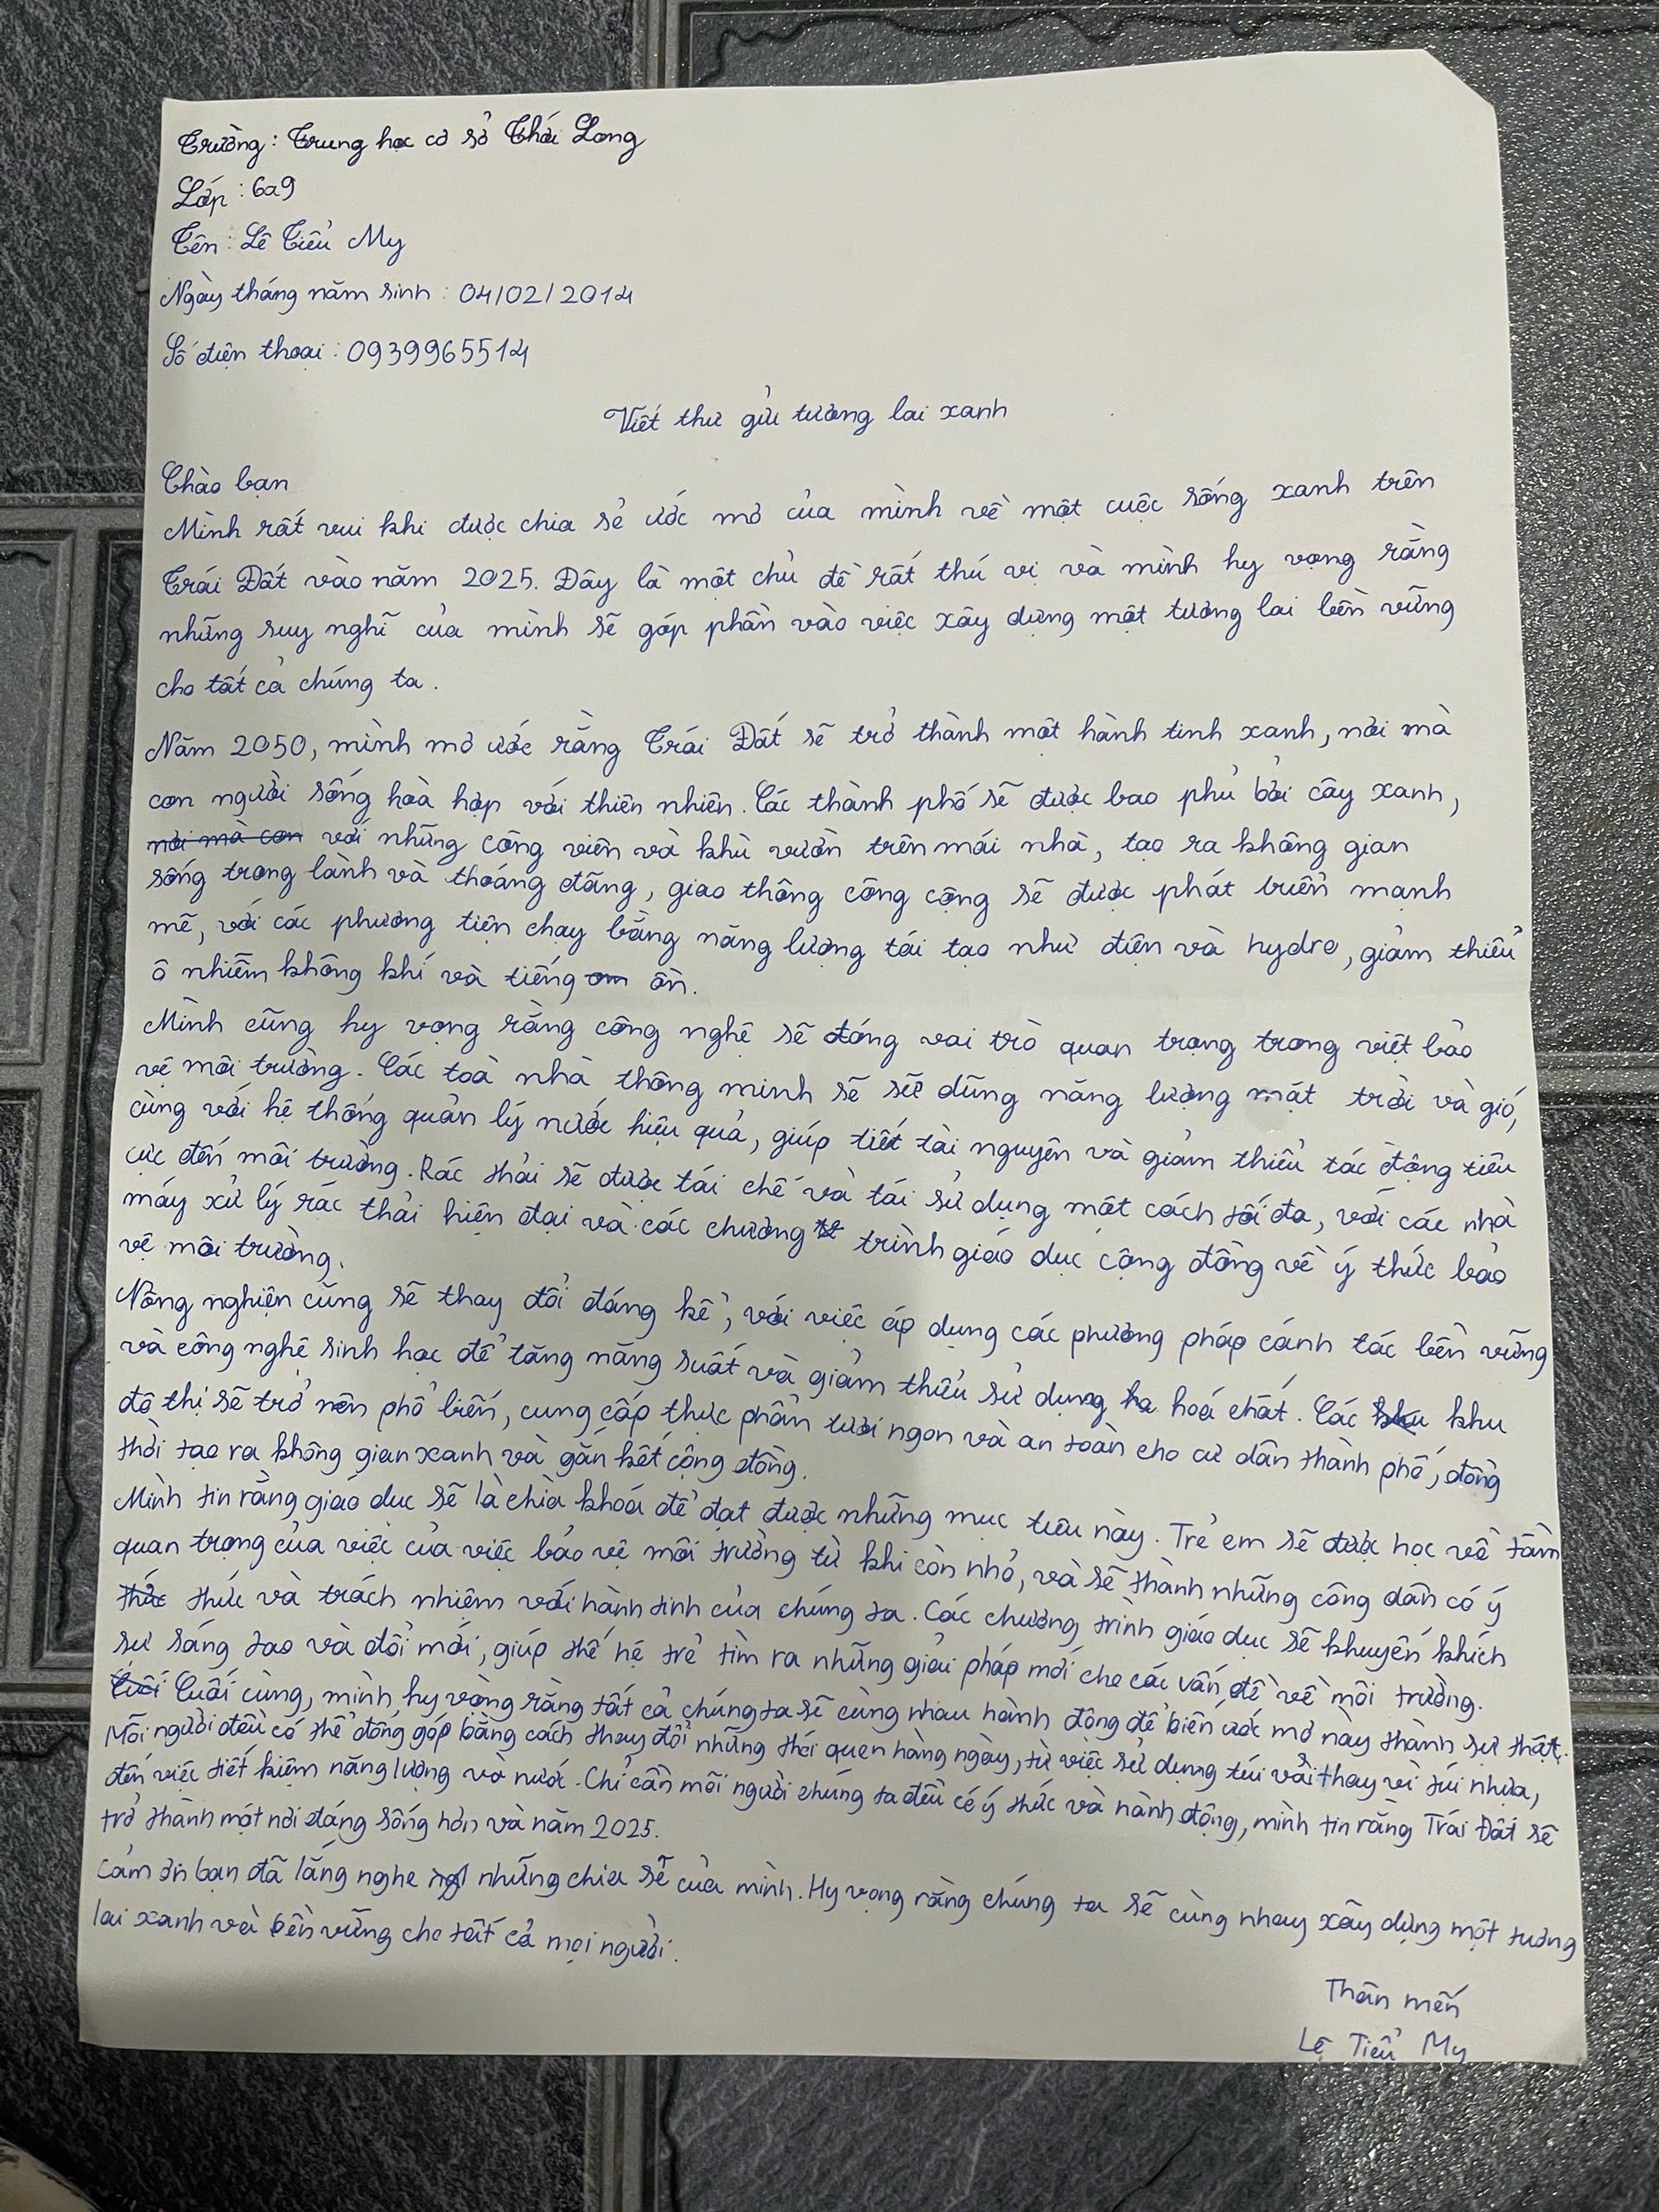 Trường: Trung học cơ sở Thới Long
Lớp: 6a9
Tên: Lê Tiểu My
Ngày tháng năm sinh: 04/02/2014
Số điện thoại: 0939965514
Viết thư gửi tương lai xanh
Chào bạn
Mình rất vui khi được chia sẻ ước mơ của mình về một cuộc sống xanh trên
Trái Đất vào năm 2025. Đây là một chủ đề rất thú vị và mình hy vọng rằng
những suy nghĩ của mình sẽ góp phần vào việc xây dựng một tương lai bền vững
cho tất cả chúng ta.
Năm 2050, mình mơ ước rằng Trái Đất sẽ trở thành một hành tinh xanh, nơi mà
con người sống hoà hợp với thiên nhiên. Các thành phố sẽ được bao phủ bởi cây xanh,
nơi mà con với những công viên và khu vườn trên mái nhà, tạo ra không gian
sống trong lành và thoáng đãng, giao thông công cộng sẽ được phát triển mạnh
mẽ, với các phương tiện chạy bằng năng lượng tái tạo như điện và hydro, giảm thiểu
ô nhiễm không khí và tiếng ồn.
Mình cũng hy vọng rằng công nghệ sẽ đóng vai trò quan trọng trong việt bảo
vệ môi trường. Các toà nhà thông minh sẽ sử dũng năng lượng mặt trời và gió,
cùng với hệ thống quản lý nước hiệu quả, giúp tiết tài nguyên và giảm thiểu tác động tiêu
cực đến môi trường. Rác thải sẽ được tái chế và tái sử dụng một cách tối đa, với các nhà
máy xử lý rác thải hiện đại và các chương trình giáo dục cộng đồng về ý thức bảo
vệ môi trường.
Nông nghiện cũng sẽ thay đổi đáng kể, với việc áp dụng các phương pháp cánh tác bền vững
và công nghệ sinh học để tăng năng suất và giảm thiểu sử dụng hoá chất. Các khu
đô thị sẽ trở nên phổ biến, cung cấp thực phẩn tươi ngon và an toàn cho cư dân thành phố, đồng
thời tạo ra không gian xanh và gắn kết cộng đồng.
Mình tin rằng giáo dục sẽ là chìa khoá để đạt được những mục tiêu này. Trẻ em sẽ được học về tầm
quan trọng của việc của việc bảo vệ môi trường từ khi còn nhỏ, và sẽ thành những công dân có ý
thức thức và trách nhiệm với hành tinh của chúng ta. Các chương trình giáo dục sẽ khuyến khích
sự sáng tạo và đổi mới, giúp thế hệ trẻ tìm ra những giải pháp mới cho các vấn đề về môi trường.
Cuối cùng, mình hy vọng rằng tất cả chúng ta sẽ cùng nhau hành động để biến ước mơ này thành sự thật.
Mỗi người đều có thể đóng góp bằng cách thay đổi những thói quen hàng ngày, từ việc sử dụng túi vải thay vì túi nhựa,
đến việc tiết kiệm năng lượng và nước. Chỉ cần mỗi người chúng ta đều có ý thức và hành động, mình tin rằng Trái Đất sẽ
trở thành một nơi đáng sống hơn và năm 2025.
Cảm ơn bạn đã lắng nghe những chia sẻ của mình. Hy vọng rằng chúng ta sẽ cùng nhay xây dựng một tương
lai xanh và bền vững cho tất cả mọi người.
Thân mến
Lê Tiểu My